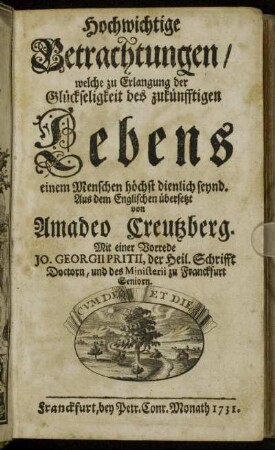 Hochwichtige
Betrachtungen/
welche zu Erlangung der
Glückseligkeit des zukünfftigen
Lebens
einem Menschen höchst dienlich seynd.
Aus dem Englischen übersetzt
von
Amadeo Creutzberg.
Mit einer Vorrede
JO. GEORGII PRITII, der Heil. Schrifft
Doctorn, und des Ministerii zu Franckfurt
Seniorn.
CVM DEO ET DIE
Franckfurt, bey Petr. Conr. Monath 1731.